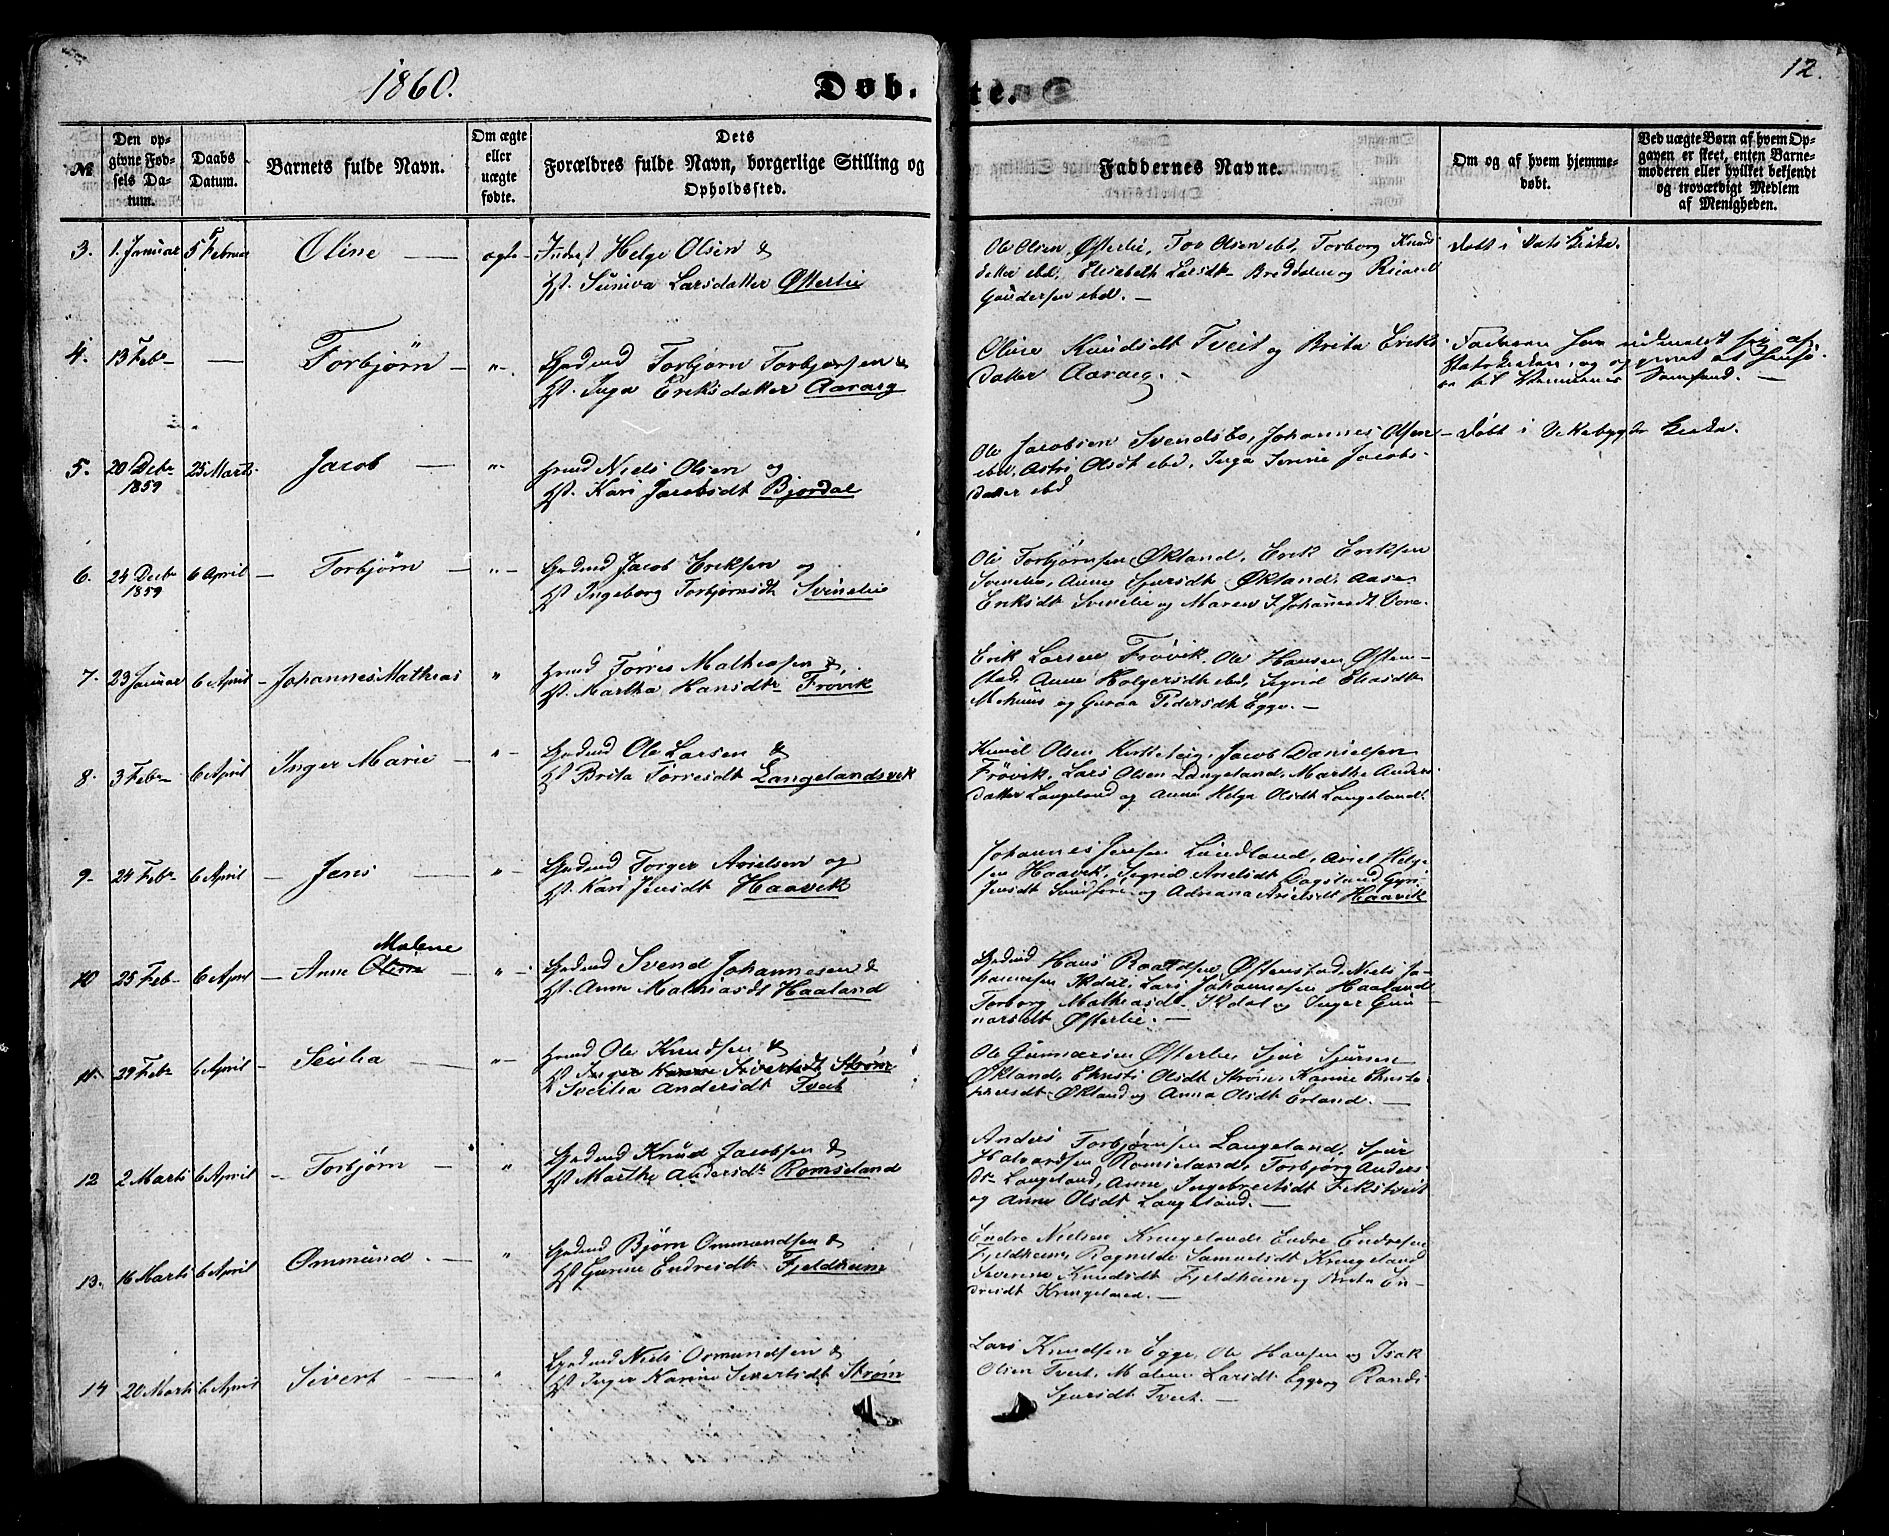 1860.
Døb-
te.
12.
№
Den op-
givne Fød-
sels Da-
tum.
Daabs
Datum.
Barnets fulde Navn.
Om ægte
eller
uægte
fødte.
Dets
Forældres fulde Navn, borgerlige Stilling og
Opholdssted.
Faddernes Navne.
Om og af hvem hjemme-
døbt.
Ved uægte Børn af hvem Op-
gaven er skeet, enten Barne-
moderen eller hvilket bekjendt
og troværdigt Medlem
af Menigheden.
3. 1. Januar 5 Februar Oline — ægte —
Helge Olsen &
Hst. Suniva Larsdatter Østerlie
Ole Olsen Østerlie, Tor Olsen ebd, Torborg Knuds
datter ebd, Elisabeth Larsdt
ebd. —
Døbt i Vats Kirke.
4. 13 Febr — Torbjørn — " —
Gbdmd Torbjørn Torbjørnsen &
Hst. Inga Eriksdatter Aarvig
Oline Knudsdt Tveit og Brita Eriks
datter Aarvig. —
Faderen har udmeldt sig af
Statskirken, og
til Samfund. —
5. 20 Debr 1859 25 Marts Jacob — " —
Niels Olsen og
Hst. Kari Jacobsdt Bjordal
Ole Jacobsen Svendsbø, Johannes Olsen
ebd, Astri Olsdt ebd, Inga Serine Jacobs-
datter ebd
Døbt i Vikebygds Kirke.
6. 24 Decbr 1859 6 April — Torbjørn — " —
Gbdmd Jacob Eriksen og
Hst Ingeborg Torbjørnsdt Svinelie
Ole Torbjørnsen Økland, Erik Eriksen
Svinelie, Anne Sjursdt Økland, Aase
Eriksdt Svinelie og Maren S. Johannesdt
7. 23 Januar 6 April — Johannes Mathias "
Torres Mathiasen &
Hst. Martha Hansdtr Frøvik
Erik Larsen Frøvik, Ole Hansen Østen-
stad, Anne Holgersdt ebd, Sigrid Eliasdt
Mehuus og Guroa Pedersdt Egge. —
8. 3 Febr — 6 April — Inger Marie — " —
Gbdmd Ole Larsen &
Hst Brita Torresdt Langelandsvik
Knud Olsen Kirkeleig, Jacob Danielsen
Frøvik, Lars Olsen Langeland, Marthe Anders-
datter Langeland og Anne Helga Olsdt Langeland.
9. 24 Febr 6 April — Jens — " —
Gbdmd Torger Arielsen og
Hst. Kari Jensdt Haavik
Johannes Jensen Lindland, Ariel Helge
sen Haavik, Sigrid Arielsdt Dagsland, Gyri
Jensdt og Adriana Arielsdt Haavik
10 25 Feb — 6 April — Anne Oline Malene — " —
Gbdmd Svend Johannesen &
Hst. Anne Mathiasdt Haaland
Gbdmd Hans Roaldsen Østenstad, Niels Jo-
hannesen Ikdal, Lars Johannesen Haaland
Torborg Mathiasdt Ikdal og Inger Gun
narsdt Østerlie. —
11. 29 Febr 6 April — Secilia — " —
Ole Knudsen &
Hst Inger Karine Sivertsdt Strøm
Secilia Andersdt Tveit
Ole Gunnarsen Østerlie, Sjur Sjursen
Økland, Christi Olsdt Strøm, Karine Christo
phersdt Økland og Anna Olsdt Erland. —
12 2 Marts 6 April — Torbjørn — "
Gbdmd Knud Jacobsen &
Hst Marthe Andersdtr Romseland
Anders Torbjørnsen Langeland, Sjur
Halvardsen Romseland, Torbjørg Anders
dtr Langeland, Anne Ingebretsdt Fikstveit
og Anne Olsdt Langeland. —
13. 16 Marts 6 April Ommund — "
Gbdmd Bjørn Ommundsen &
Hst Gurine Endresdt Fjeldheim
Endre Nielsen Kringeland, Endre Endresen
Fjeldheim, Ragnilde Samuelsdt Kringeland
Severine Knudsdt Fjeldheim og Brita En-
dresdt Kringeland. —
14 20 Marts 6 April Sivert — "
Gbdmd Niels Osmundsen &
Hst. Inger Karine Sivertsdt Strøm
Lars Knudsen Egge, Ole Hansen og Isak
Olsen Tveit, Malene Larsdt Egge og Randi
Sjursdt Tveit. —